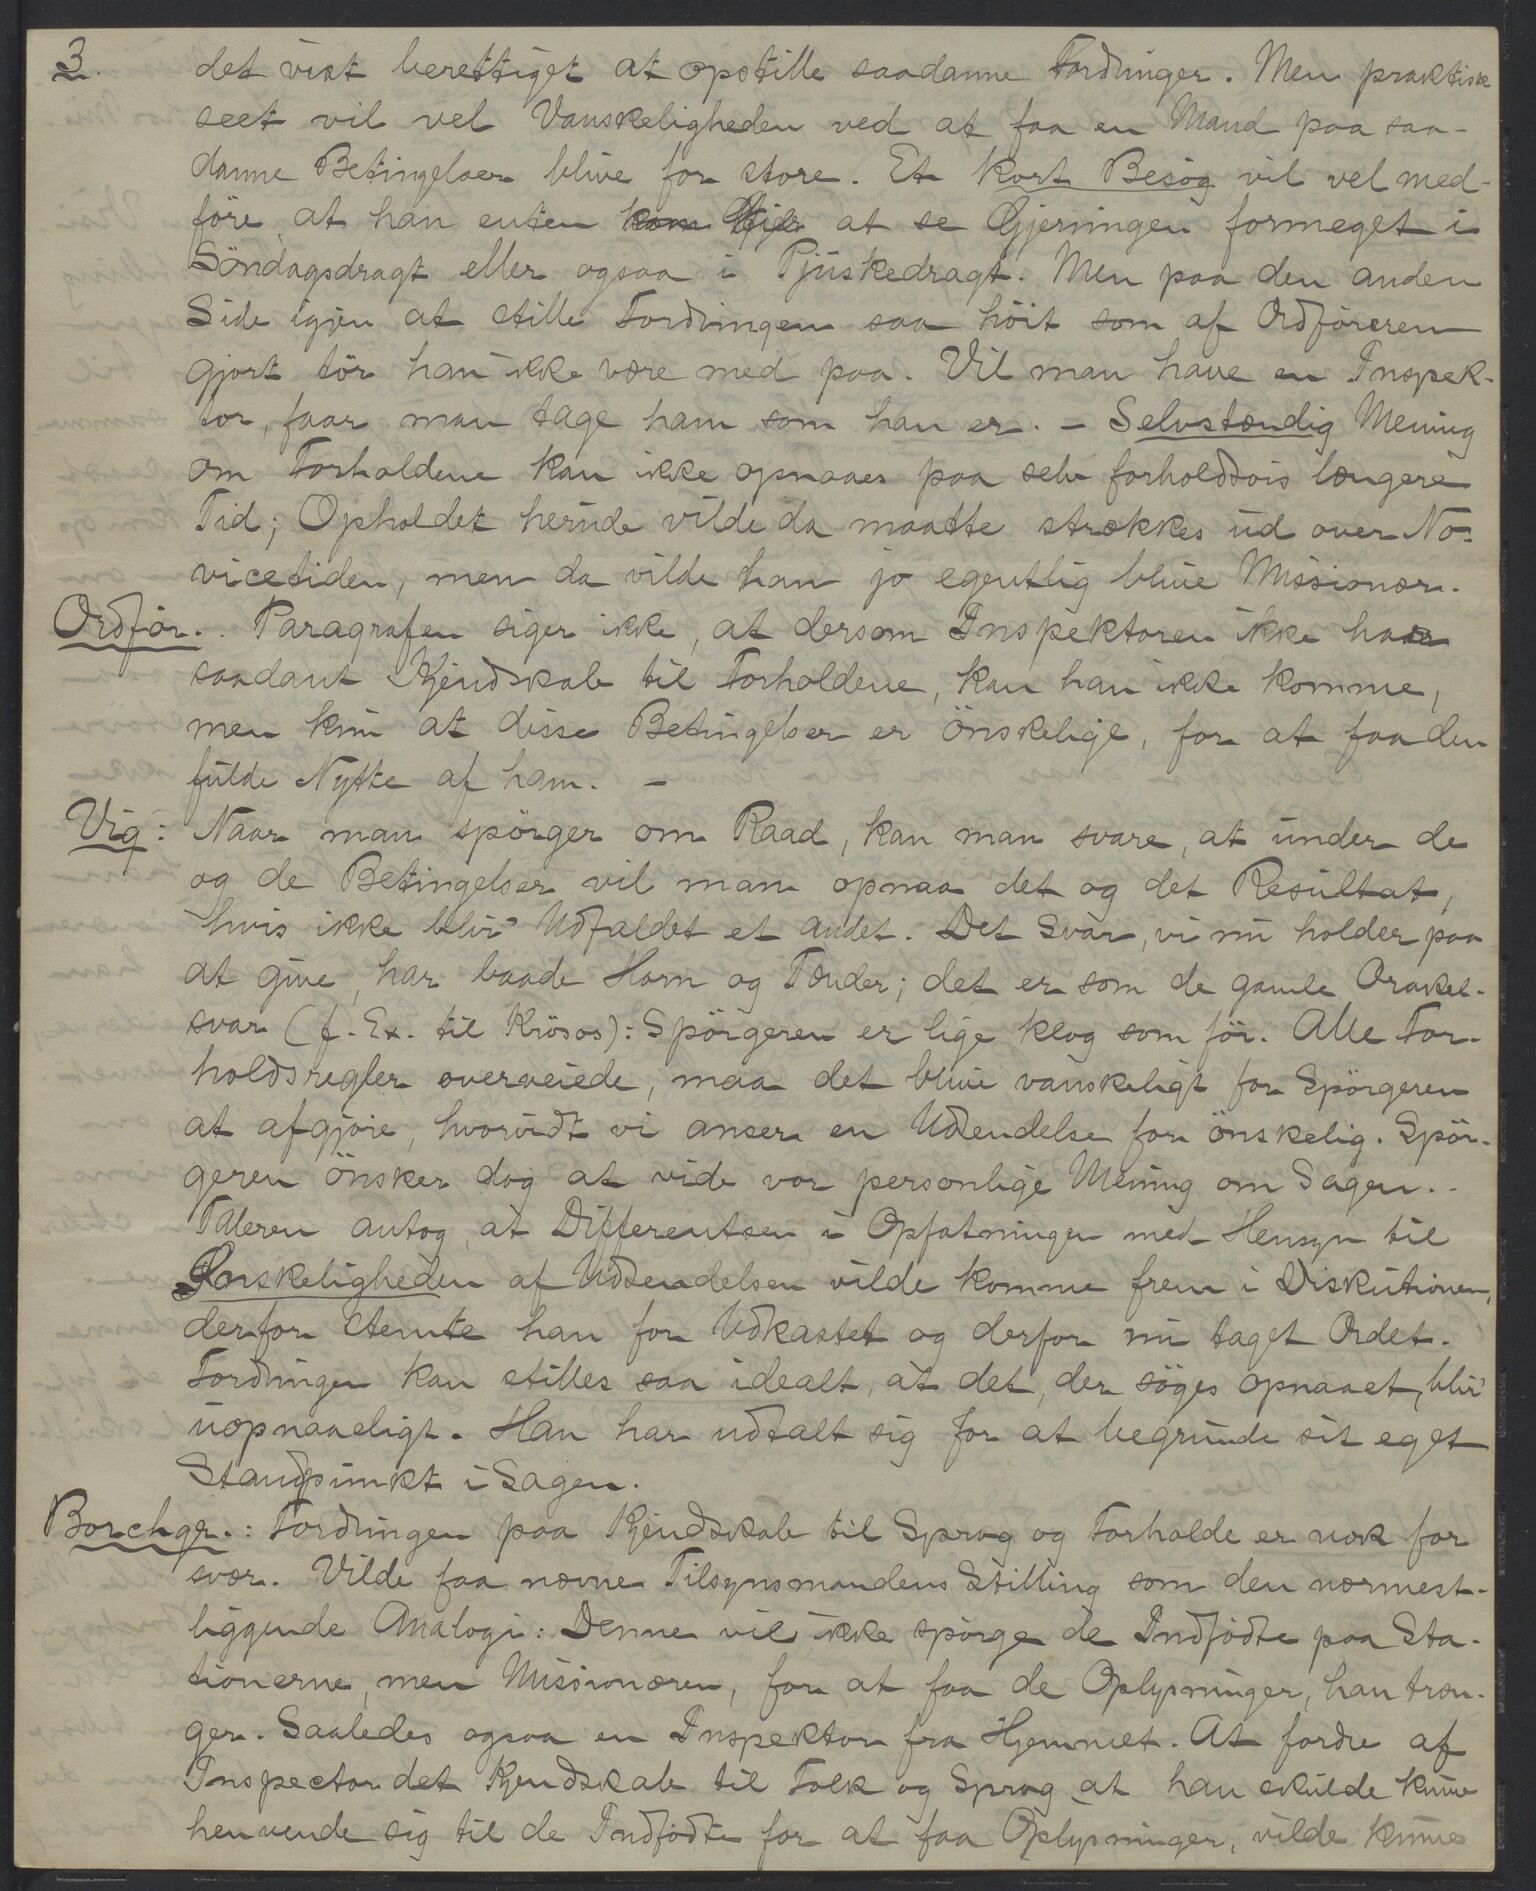 3.
det vist berettiget at opstille saadanne Fordringer. Men praktisk
seet vil vel Vanskeligheden ved at faa en Mand paa saa-
danne Betingelser blive for store. Et kort Besög vil vel med-
före, at han enten at se Gjerningen formeget i
Söndagsdragt eller ogsaa i Pjuskedragt. Men paa den anden
Side igjen at stille Fordringen saa höit som af Ordföreren
gjort tör han ikke være med paa. Vil man have en Inspek-
tor, faar man tage ham som han er. - Selvstændig Mening
om Forholdene kan ikke opnaaes paa selv forholdsvis længere
Tid; Opholdet herude vilde da maatte strækkes ud over No-
vicetiden, men da vilde han jo egentlig blive Missionær.
Ordför.. Paragrafen siger ikke, at dersom Inspektoren ikke har
saadant Kjendskab til Forholdene, kan han ikke komme,
men kun at disse Betingelser er önskelige, for at faa den
fulde Nytte af ham. -
Vig: Naar man spörger om Raad, kan man svare, at under de
og de Betingelser vil man opnaa det og det Resultat,
hvis ikke blir Udfaldet et andet. Det Svar, vi nu holder paa
at give, har baade Horn og Tænder; det er som de gamle Orakel-
svar (f. Ex. til Krösos): Spörgeren er lige klog som för. Alle For-
holdsregler overveiede, maa det blive vanskeligt for Spörgeren
at afgjöre, hvorvidt vi anser en Udsendelse for önskelig. Spör-
geren önsker dog at vide vor personlige Mening om Sagen. -
Taleren antog, at Differentsen i Opfatningen med Hensyn til
Önskeligheden af Udsendelsen vilde komme frem i Diskutionen,
derfor stemte han for Udkastet og derfor nu taget Ordet.
Fordringen kan stilles saa idealt, at det, der söges opnaaet, blir
uopnaaeligt. Han har udtalt sig for at begrunde sit eget
Standpunkt i Sagen.
Borchgr.: Fordringen paa Kjendskab til Sprog og Forholde er nok for
svær. Vilde faa nævne Tilsynsmandens Stilling som den nærmest-
liggende Analogi: Denne vil ikke spörge de Indfödte paa Sta-
tionerne, men Missionæren, for at faa de Oplysninger, han træn-
ger. Saaledes ogsaa en Inspektor fra Hjemmet. At fordre af
Inspector det Kjendskab til Folk og Sprog at han skulde kunne
henvende sig til de Indfödte for at faa Oplysninger, vilde kunne